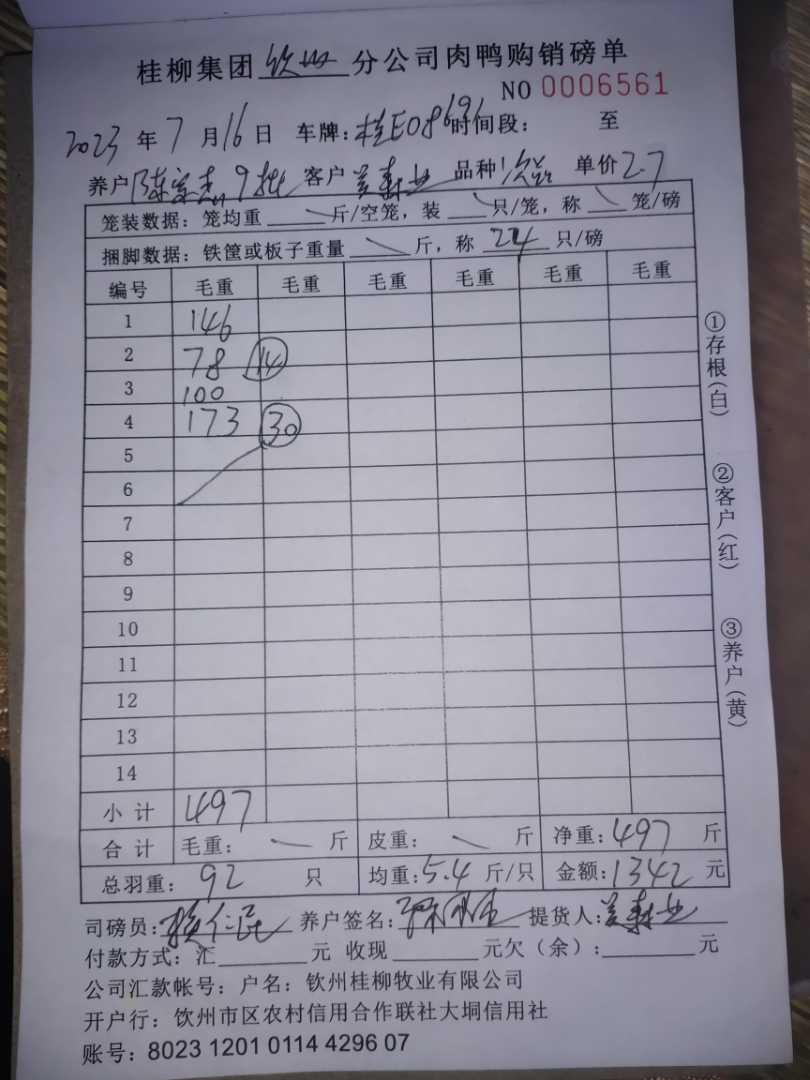 桂柳集团钦州分公司肉鸭购销磅单
NO 0006561
2023年7月16日 车牌:桂E08691时间段: 至
养户 9批 客户 品种 次品 单价2.7
笼装数据: 笼均重 斤/空笼, 装 只/笼, 称 笼/磅
捆脚数据: 铁筐或板子重量 斤, 称 24 只/磅
编号 毛重 毛重 毛重 毛重 毛重 毛重
1 146
2 78 14
3 100
4 173 30
5
6
7
8
9
10
11
12
13
14
小计 497
合计 毛重: 斤 皮重: 斤 净重: 497 斤
总羽重: 92 只 均重: 5.4 斤/只 金额: 1342 元
司磅员: 养户签名: 提货人:
付款方式: 汇 元 收现 元欠(余): 元
公司汇款帐号: 户名: 钦州桂柳牧业有限公司
开户行: 钦州市区农村信用合作联社大垌信用社
账号: 8023 1201 0114 4296 07
①存根(白)
②客户(红)
③养户(黄)